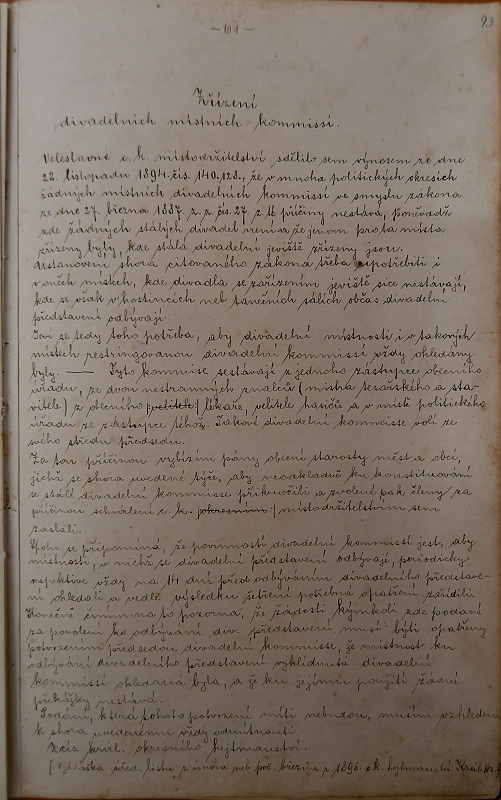 93
— 61. —
Zřízení
divadelních místních kommissí.
Veleslavné c. k. místodržitelství sdělilo sem výnosem ze dne
22. listopadu 1894. čís. 140.128., že v mnoha politických okresích
žádných místních divadelních kommissí ve smyslu zákona
ze dne 27. března 1887. z. z. čís. 27. z té příčiny nestává, poněvadž
zde žádných stálých divadel není a že jenom pro ta místa
zřízeny byly, kde stálá divadelní jeviště zřízeny jsou.
Ustanovení shora citovaného zákona třeba upotřebiti i
v oněch místech, kde divadla se zařízením jeviště sice nestávají,
kde se však v hostincích neb tanečních sálích občas divadelní
představení odbývají.
Jeví se tedy toho potřeba, aby divadelní místnosti i v takových
místech restringovanou divadelní kommissí vždy ohledány
byly. — Tyto kommise sestávají z jednoho zástupce obecního
úřadu, ze dvou nestranných znalců (mistra tesařského a sta-
vitele) z obecního lékaře, velitele hasičů a v místě politického
úřadu ze zástupce téhož. Takové divadelní kommisse volí ze
svého středu předsedu.
Za tou příčinou vybízím pány obecní starosty měst a obcí,
jichž se shora uvedené týče, aby neodkladně ku konstituování
se stálé divadelní kommisse přikročili a zvolené pak členy za
příčinou schválení c. k. místodržitelstvím sem
zaslali.
Spolu se připomíná, že povinností divadelní kommissí jest, aby
místnosti, v nichž se divadelní představení odbývají, periodicky
respektive vždy na 14 dní před odbýváním divadelního představe-
ní ohledali a vedle výsledku šetření potřebná opatření zřídili.
Konečně činím na to pozorna, že žádosti kýmkoli zde podané
za povolení ko odbývání div. představení musí býti opatřeny
potvrzením předsedou divadelní kommisse, že místnost ku
odbývání divadelního představení vyhlédnutá divadelní
kommissí ohledána byla, a že ku jejímu použití žádné
překážky nestává.
Podání, která tohoto potvrzení míti nebudou, musím vzhledem
k shora uvedenému vždy odmítnouti.
Z cís. král. okresního hejtmanství.
úřed. listu z února neb poč. března r. 1895 c. k. hejtmanství